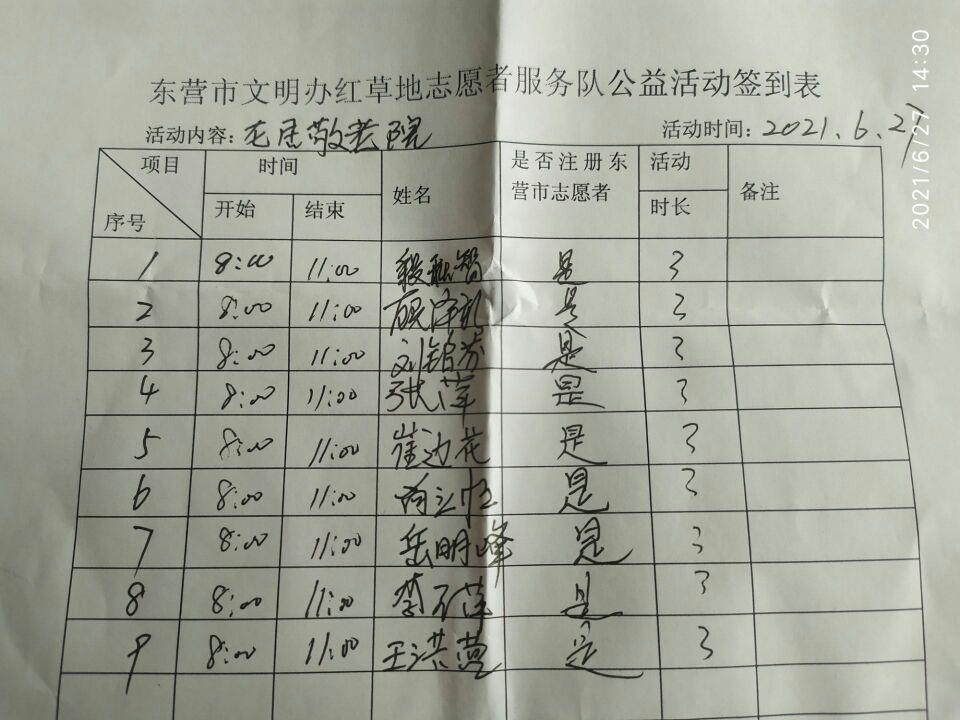 2021/6/27 14:30
东营市文明办红草地志愿者服务队公益活动签到表
活动内容: 敬老院 活动时间: 2021.6.27
项目 时间 姓名 是否注册东营市志愿者 活动时长 备注
序号 开始 结束
1 8:00 11:00 是 3
2 8:00 11:00 是 3
3 8:00 11:00 是 3
4 8:00 11:00 张萍 是 3
5 8:00 11:00 崔边花 是 3
6 8:00 11:00 是 3
7 8:00 11:00 岳明峰 是 3
8 8:00 11:00 李 萍 是 3
9 8:00 11:00 王洪 是 3